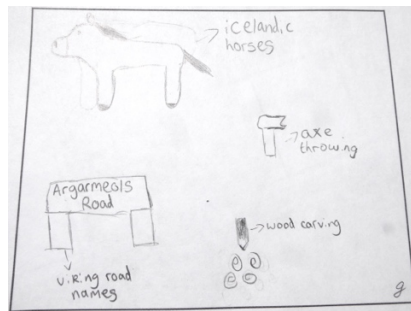 icelandic
horses
axe
throwing
Argarmeols
Road
wood carving
viking road
names
g